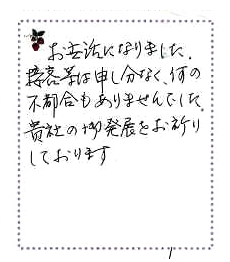 お世話になりました。
接客等は申し分なく、何の
不都合もありませんでした。
貴社の御発展をお祈り
しております